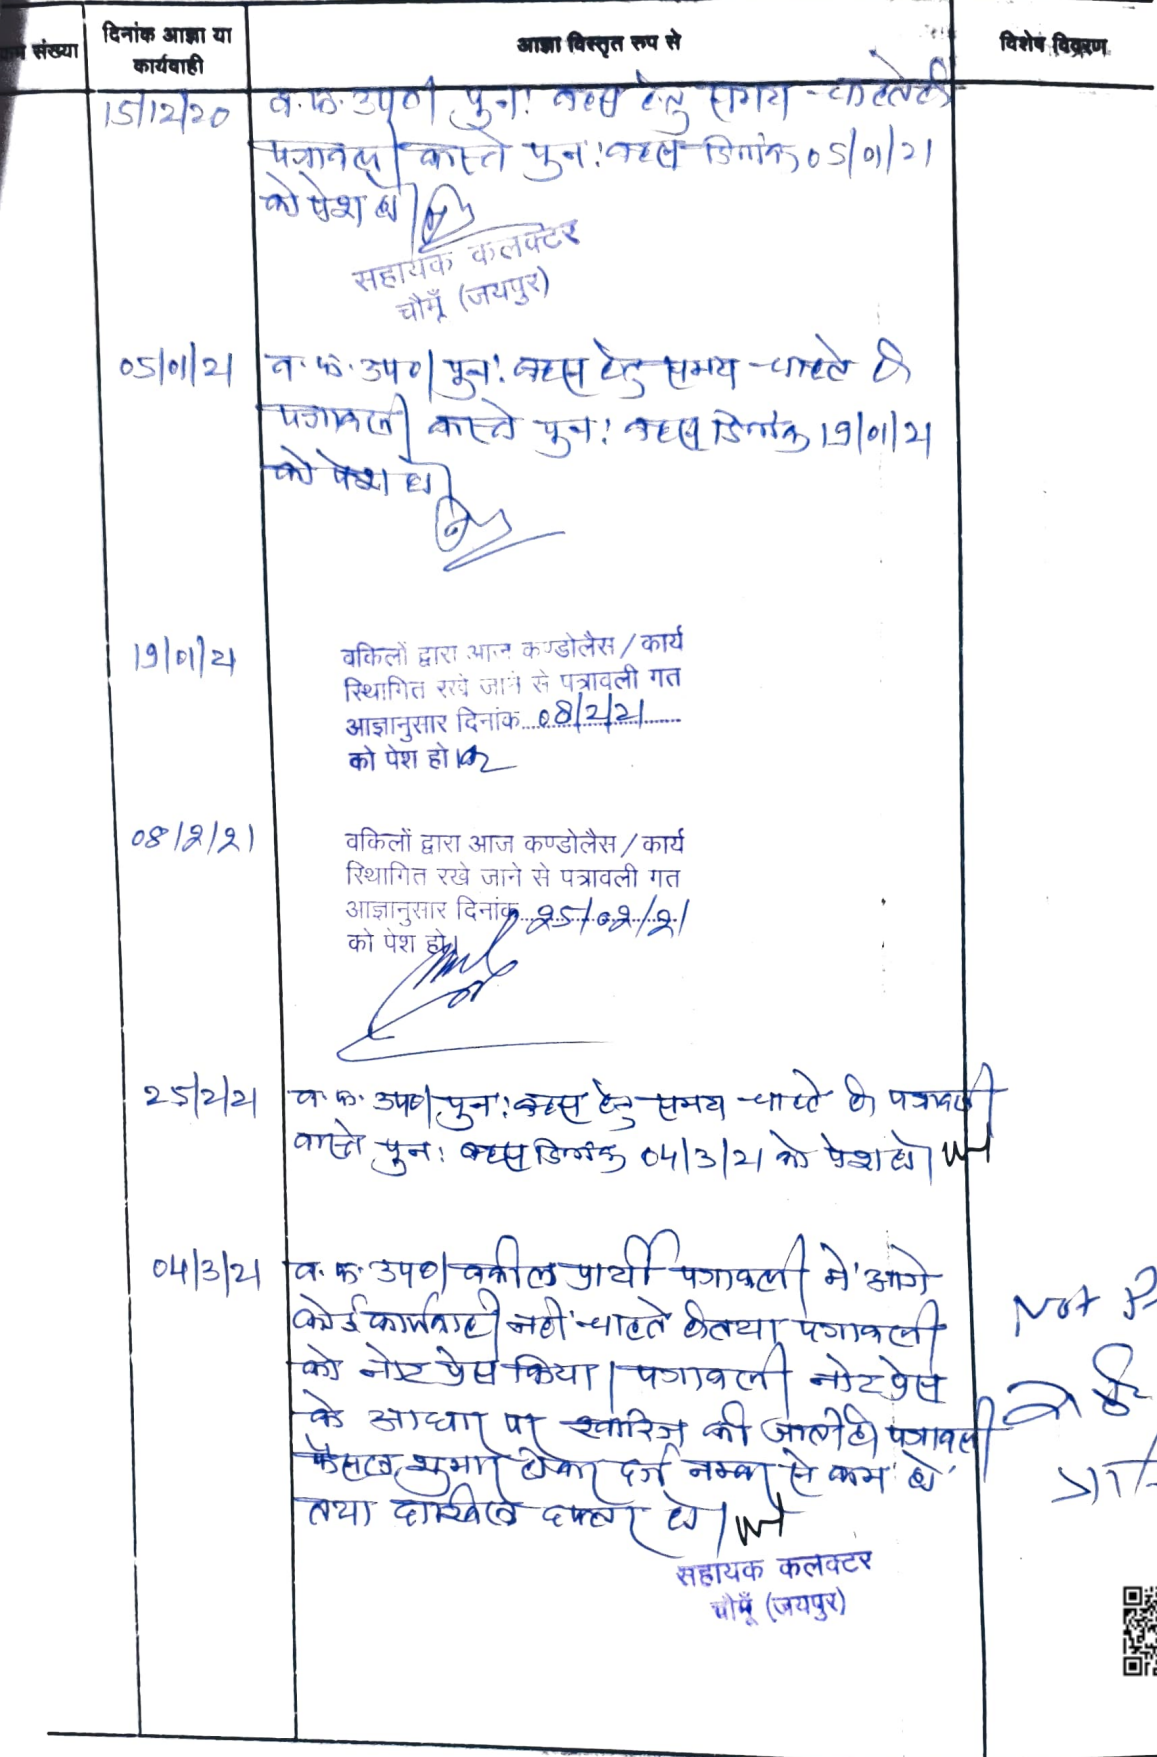 संख्या
दिनांक आज्ञा या
कार्यवाही
आज्ञा विस्तृत रूप से
विशेष विवरण
15/12/20
व.फ. उप०। पुनः बहस हेतु समय चाहते है
पत्रावली वास्ते पुनः बहस दिनांक 05/01/21
को पेश हो।
सहायक कलक्टर
चौमूँ (जयपुर)
05/01/21
व.फ. उप०। पुनः बहस हेतु समय चाहते है
पत्रावली वास्ते पुनः बहस दिनांक 19/01/21
को पेश हो।
19/01/21
वकिलों द्वारा आज कण्डोलैस / कार्य
स्थिागित रखे जाने से पत्रावली गत
आज्ञानुसार दिनांक 08/2/21
को पेश हो।
08/2/21
वकिलों द्वारा आज कण्डोलैस / कार्य
स्थिागित रखे जाने से पत्रावली गत
आज्ञानुसार दिनांक 25/02/21
को पेश हो।
25/2/21
व.फ. उप०। पुनः बहस हेतु समय चाहते है पत्रावली
वास्ते पुनः बहस दिनांक 04/3/21 को पेश हो।
04/3/21
व.फ. उप०। वकील प्रार्थी पत्रावली में आगे
कोई कार्यवाही नहीं चाहते है तथा पत्रावली
को नोट प्रेस किया। पत्रावली नोट प्रेस
के आधार पर खारिज की जाती है। पत्रावली
फैसल शुमार होकर दर्ज नम्बर से कम हो
तथा दाखिल दफ्तर हो।
सहायक कलक्टर
चौमूँ (जयपुर)
Not